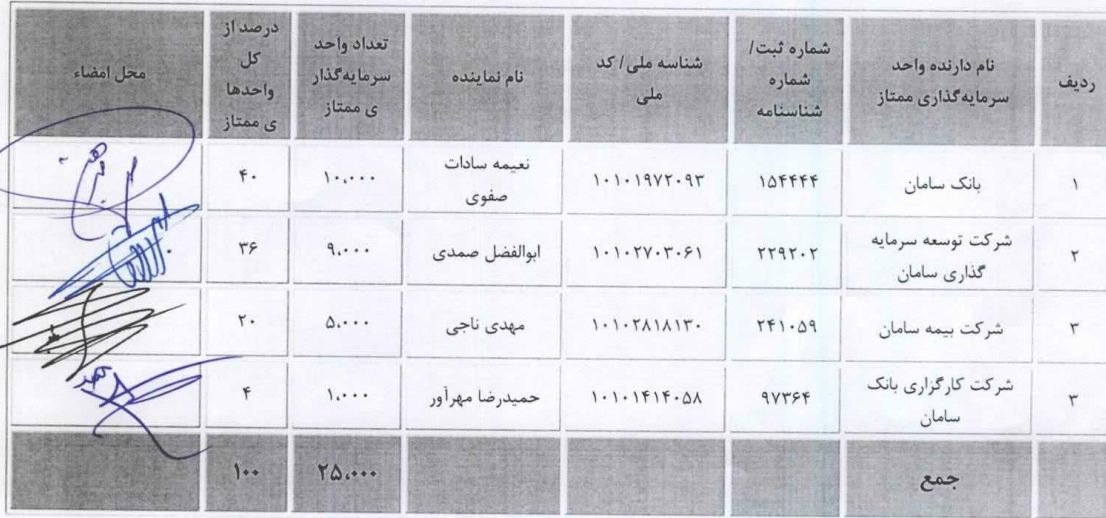 ردیف
نام دارنده واحد
سرمایه‌گذاری ممتاز
شماره ثبت/
شماره
شناسنامه
شناسه ملی/ کد
ملی
نام نماینده
تعداد واحد
سرمایه‌گذار
ی ممتاز
درصد از
کل
واحدها
ی ممتاز
محل امضاء
۱
بانک سامان
۱۵۴۴۴۴
۱۰۱۰۱۹۷۲۰۹۳
نعیمه سادات
صفوی
۱۰،۰۰۰
۴۰
۲
شرکت توسعه سرمایه
گذاری سامان
۲۲۹۲۰۲
۱۰۱۰۲۷۰۳۰۶۱
ابوالفضل صمدی
۹،۰۰۰
۳۶
۳
شرکت بیمه سامان
۲۴۱۰۵۹
۱۰۱۰۲۸۱۸۱۳۰
مهدی ناجی
۵،۰۰۰
۲۰
۳
شرکت کارگزاری بانک
سامان
۹۷۳۶۴
۱۰۱۰۱۴۱۴۰۵۸
حمیدرضا مهرآور
۱،۰۰۰
۴
جمع
۲۵،۰۰۰
۱۰۰